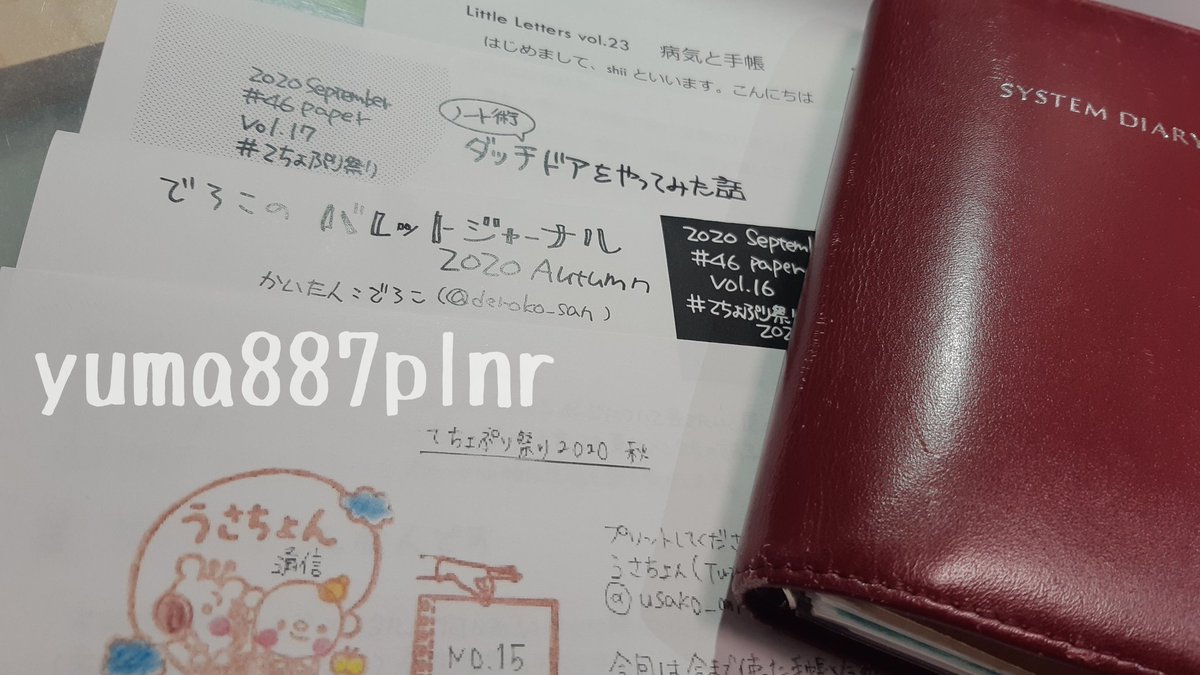 Little Letters vol.23 病気と手帳
はじめまして、shii といいます。こんにちは
2020 September
#46 paper
Vol.17
#てちょぷり祭り
ノート術
ダッチドアをやってみた話
でろこの バレットジャーナル
2020 Autumn
かいたん:でろこ(@deroko_san)
2020 Septem
#46 paper
Vol.16
#てちょぷり祭り
202
SYSTEM DIARY
yuma887plnr
てちょぷり祭り2020 秋
うさちょん
通信
NO.15
プリントしてくださ
うさちょん(Tw
@usako_
今回は今まで使った手帳